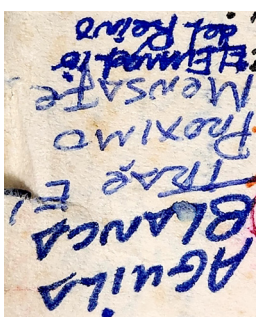 AGUILA
BLANCA
TRAE El
PROXIMO
MENSAJE
del Reino